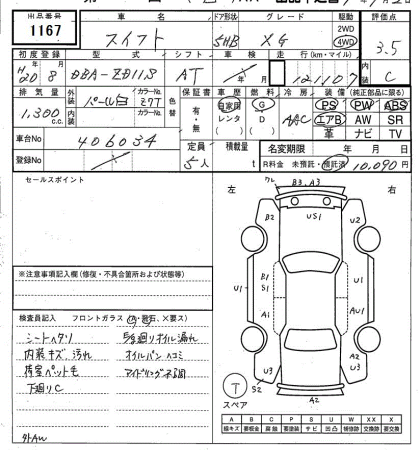 出品番号 車名 ドア形状 グレード 駆動 評価点
1167 スイフト 5HB XG 2WD 4WD 3.5
初度登録 型式 シフト 車検 走行(km・マイル) 内装
H20 8 DBA-ZD11S AT 121107 C
排気量 外装 カラーNo. 色替 保証書 車歴 燃料 冷房 装備(純正部品に限る)
1,300 c.c. パール白 Z7T 有・無 自家用 G AAC PS PW ABS
内装 カラーNo. レンタ D エアB AW SR
( ) ( ) 革 ナビ TV
車台No 406034 定員 積載量 名変期限 年 月 日
登録No 5人 t R料金 未預託・預託済 10,090円
セールスポイント
左 右
B3.A3
B2 US1 U2
U1 B1 S1 U1
A1 AU1
U3 U3
S2 A2
T
スペア
※注意事項記入欄(修復・不具合箇所および状態等)
検査員記入 フロントガラス (A・飛石、X要ス)
シートヘタリ
内装キズ、汚れ オイルパンヘコミ
荷室ペット毛 アイドリング不調
下廻りC
外AW
A B C P S U W X XX
線キズ 要板金 腐蝕 要塗装 サビ 凹凸 補修跡 交換跡 要交換